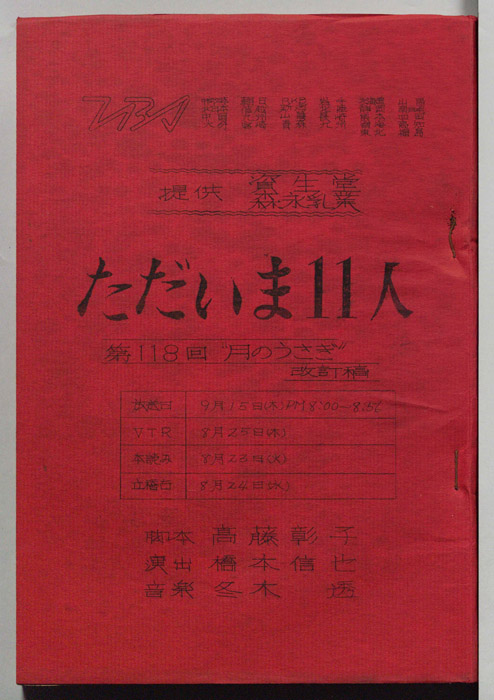 TBS
提供 資生堂
森永乳業
ただいま11人
第118回 "月のうさぎ"
改訂稿
放送日 9月15日(木)PM8:00~8:56
VTR 8月25日(木)
本読み 8月23日(火)
立稽古 8月24日(水)
脚本 高藤彰子
演出 橋本信也
音楽 冬木透